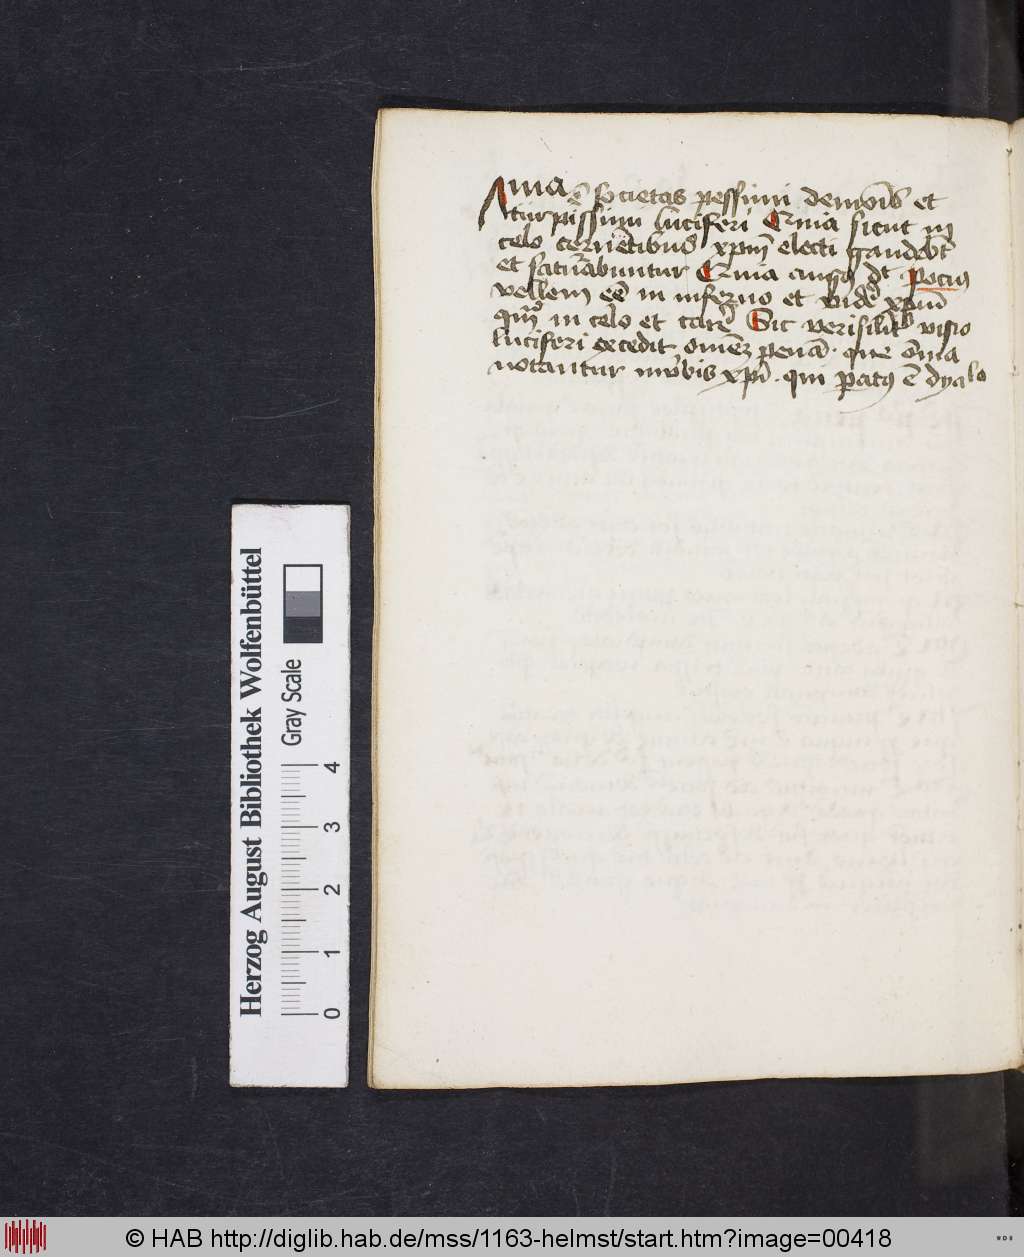 ē societas pessimi demōis et
turpissimi luciferi Quia sicut in
celo cernētibus xpm electi gaudebt
et saciabuntur Quia augus dt Pocius
vellem eē in inferno et vidē xpm
qm in celo et carē Sic verisilit visio
luciferi excedit omēz penā. que oīa
notantur in vbis xpi. qui patus ē dyalo
Herzog August Bibliothek Wolfenbüttel
Gray Scale
0 1 2 3 4
© HAB http://diglib.hab.de/mss/1163-helmst/start.htm?image=00418